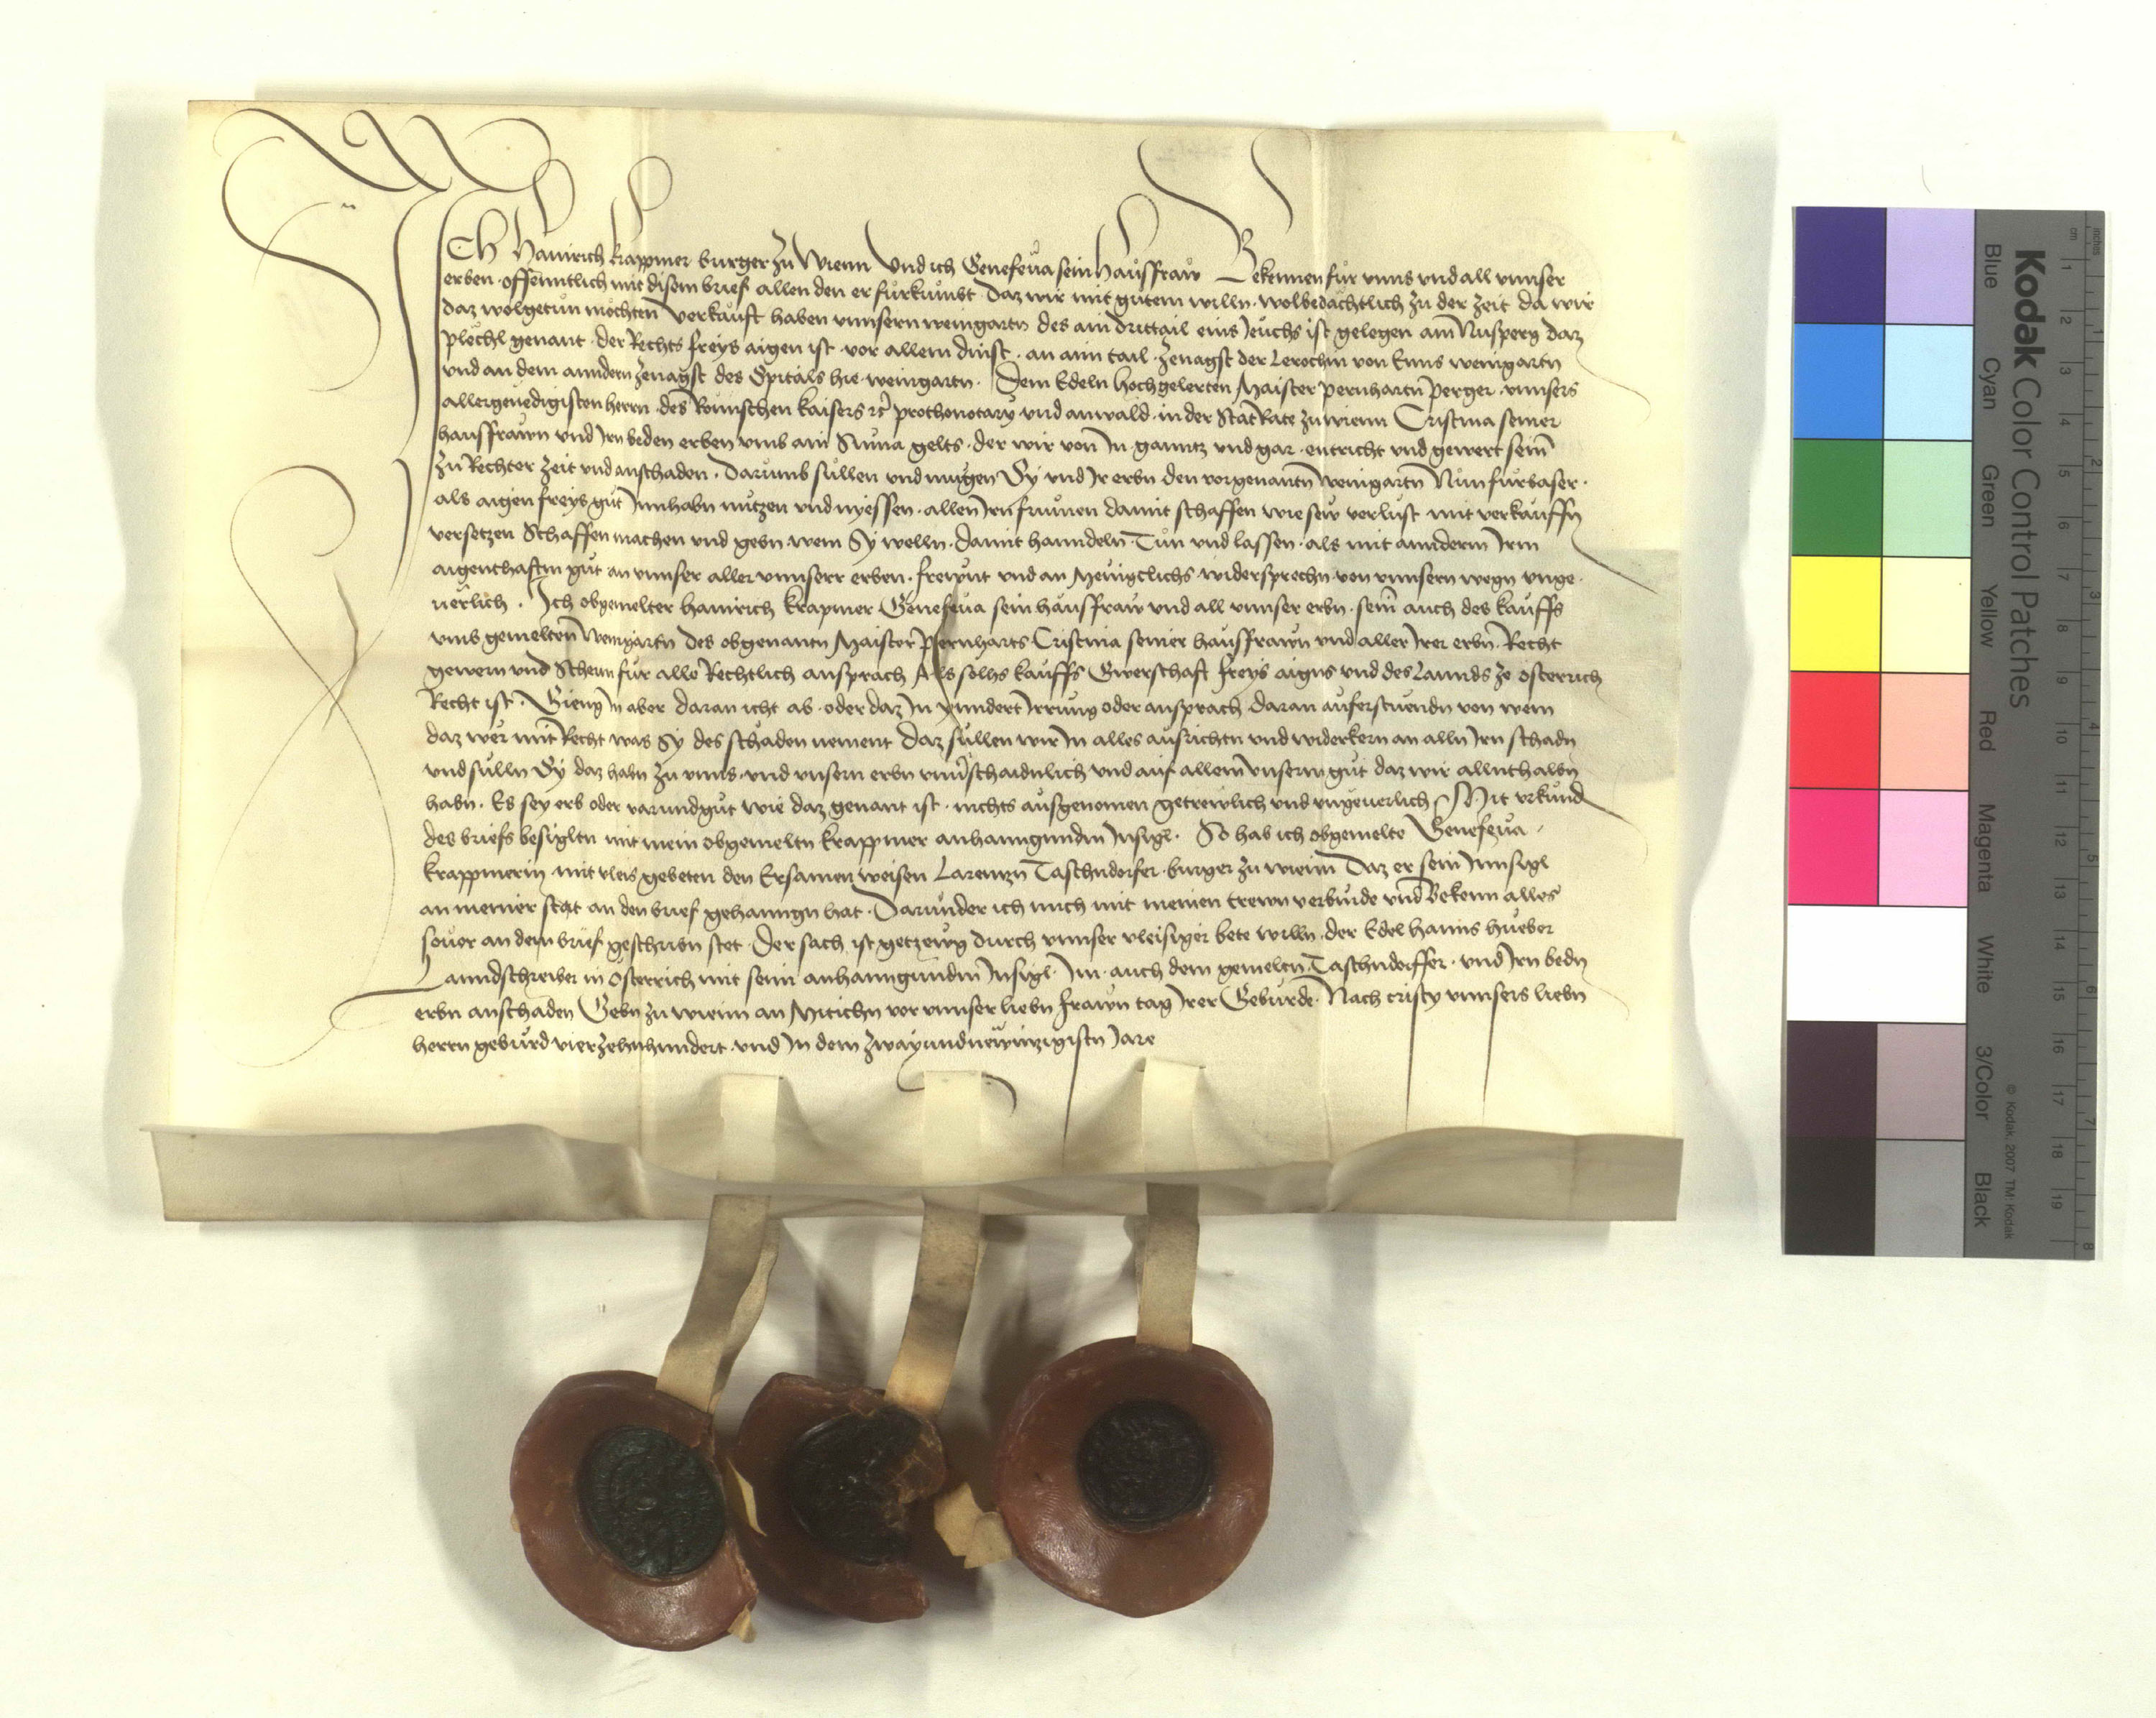 Ich Hainrich Krappner burger zu Wienn Und ich Genefeva sein Hausfraw Bekennen für unns und all unnser
erben offenntlich mit disem brief allen den er fürkumbt Daz wir mit gutem willn wolbedachtlich zu der Zeit da wir
daz wolgetun mochten Verkaufft haben unnsern weingartn des ain drittail eins Jeuchs ist gelegen am Nusperg daz
plechl genant der Rechts freys aigen ist vor allem dinst an aim tail Zenagst der Lerochin von Enns weingartn
und an dem anndern Zenagst des Spitals hie weingartn Dem Edeln hochgelerten Maister Pernhartn Perger unnsers
allergenedigisten herrn des Römischen Kaisers rc prothonotary und anwald in der Stat Rate zu wienn Cristina seiner
hausfrawn und Irn beden erben umb ain Suma gelts der wir von In ganntz und gar entricht und gewert sein
zu Rechter Zeit und anschaden Darumb sullen und mugen Sy und Ir erbn den vorgenantn Weingartn Nun fürbaser
als aigen freys gut Innhabn nutzen und nyessen allen Irn frumen damit schaffen wie sew verlust mit verkauffn
versetzen Schaffen machen und gebn wem Sy welln damit hanndeln Tun und lassen als mit annderm Irm
aigenthaftm gut an unnser aller unnserr erben freunt und an Menigclichs widersprechn von unnsern wegn unge
uerlich Ich obgemelter Hainrich Krapner Genefeva sein hausfraw und all unnser erbn sein auch des kauffs
umb gemelten Weingartn des obgenantn Maister Pernharts Cristina seiner hausfrawn und aller Irer erbn Recht
gewern und Scherm für alle Rechtlich ansprach Als solhs kauffs Gwerschaft freys aigns und des Lannds ze osterrich
Recht ist Gieng In aber daran icht ab oder daz In yundert Irrung oder ansprach daran auferstuendn von wem
daz wer mit Recht was Sy des schaden nement Daz sullen wir In alles ausrichtn und widerkern an alln Irn schadn
und sulln Sy daz habn zu unns und unsern erbn unuerschaidnlich und auf allem unserm gut daz wir allnthalbn
habn Es sey erb oder varundgut wie daz genant ist nichts ausgenomen getrewlich und ungeuerlich Mit urkund
des briefs besigltn mit mein obgemeltn krappner anhanngundm Insigl So hab ich obgemelte Genefeva
krappnerin mit vleis gebeten den Ersamen weisen Larenzn Taschndorfer burger zu wienn Daz er sein Innsigl
an meiner stat an den brief gehanngn hat Darunder ich mich mit meinen trewn verbinde und Bekenn alles
souor an dem brief geschribn stet Der sach ist getzewg durch unnser vleissiger bete willn der Edel Hanns Hueber
Lanndschreiber in Osterrich mit seim anhanngundm Insigl Im auch dem gemeltn Taschndorffer und Irn bedn
erbn anschaden Gebn zu wienn an Mitichn vor unnser liebn frawn tag Irer Geburde Nach cristy unnsers liebn
herrn geburd vierzehnhundert und In dem Zwayundnewnzigistn Jare
Kodak Color Control Patches
Blue Cyan Green Yellow Red Magenta White 3/Color Black
© Kodak, 2007 TM: Kodak
cm 1 2 3 4 5 6 7 8 9 10 11 12 13 14 15 16 17 18 19
inches 1 2 3 4 5 6 7 8